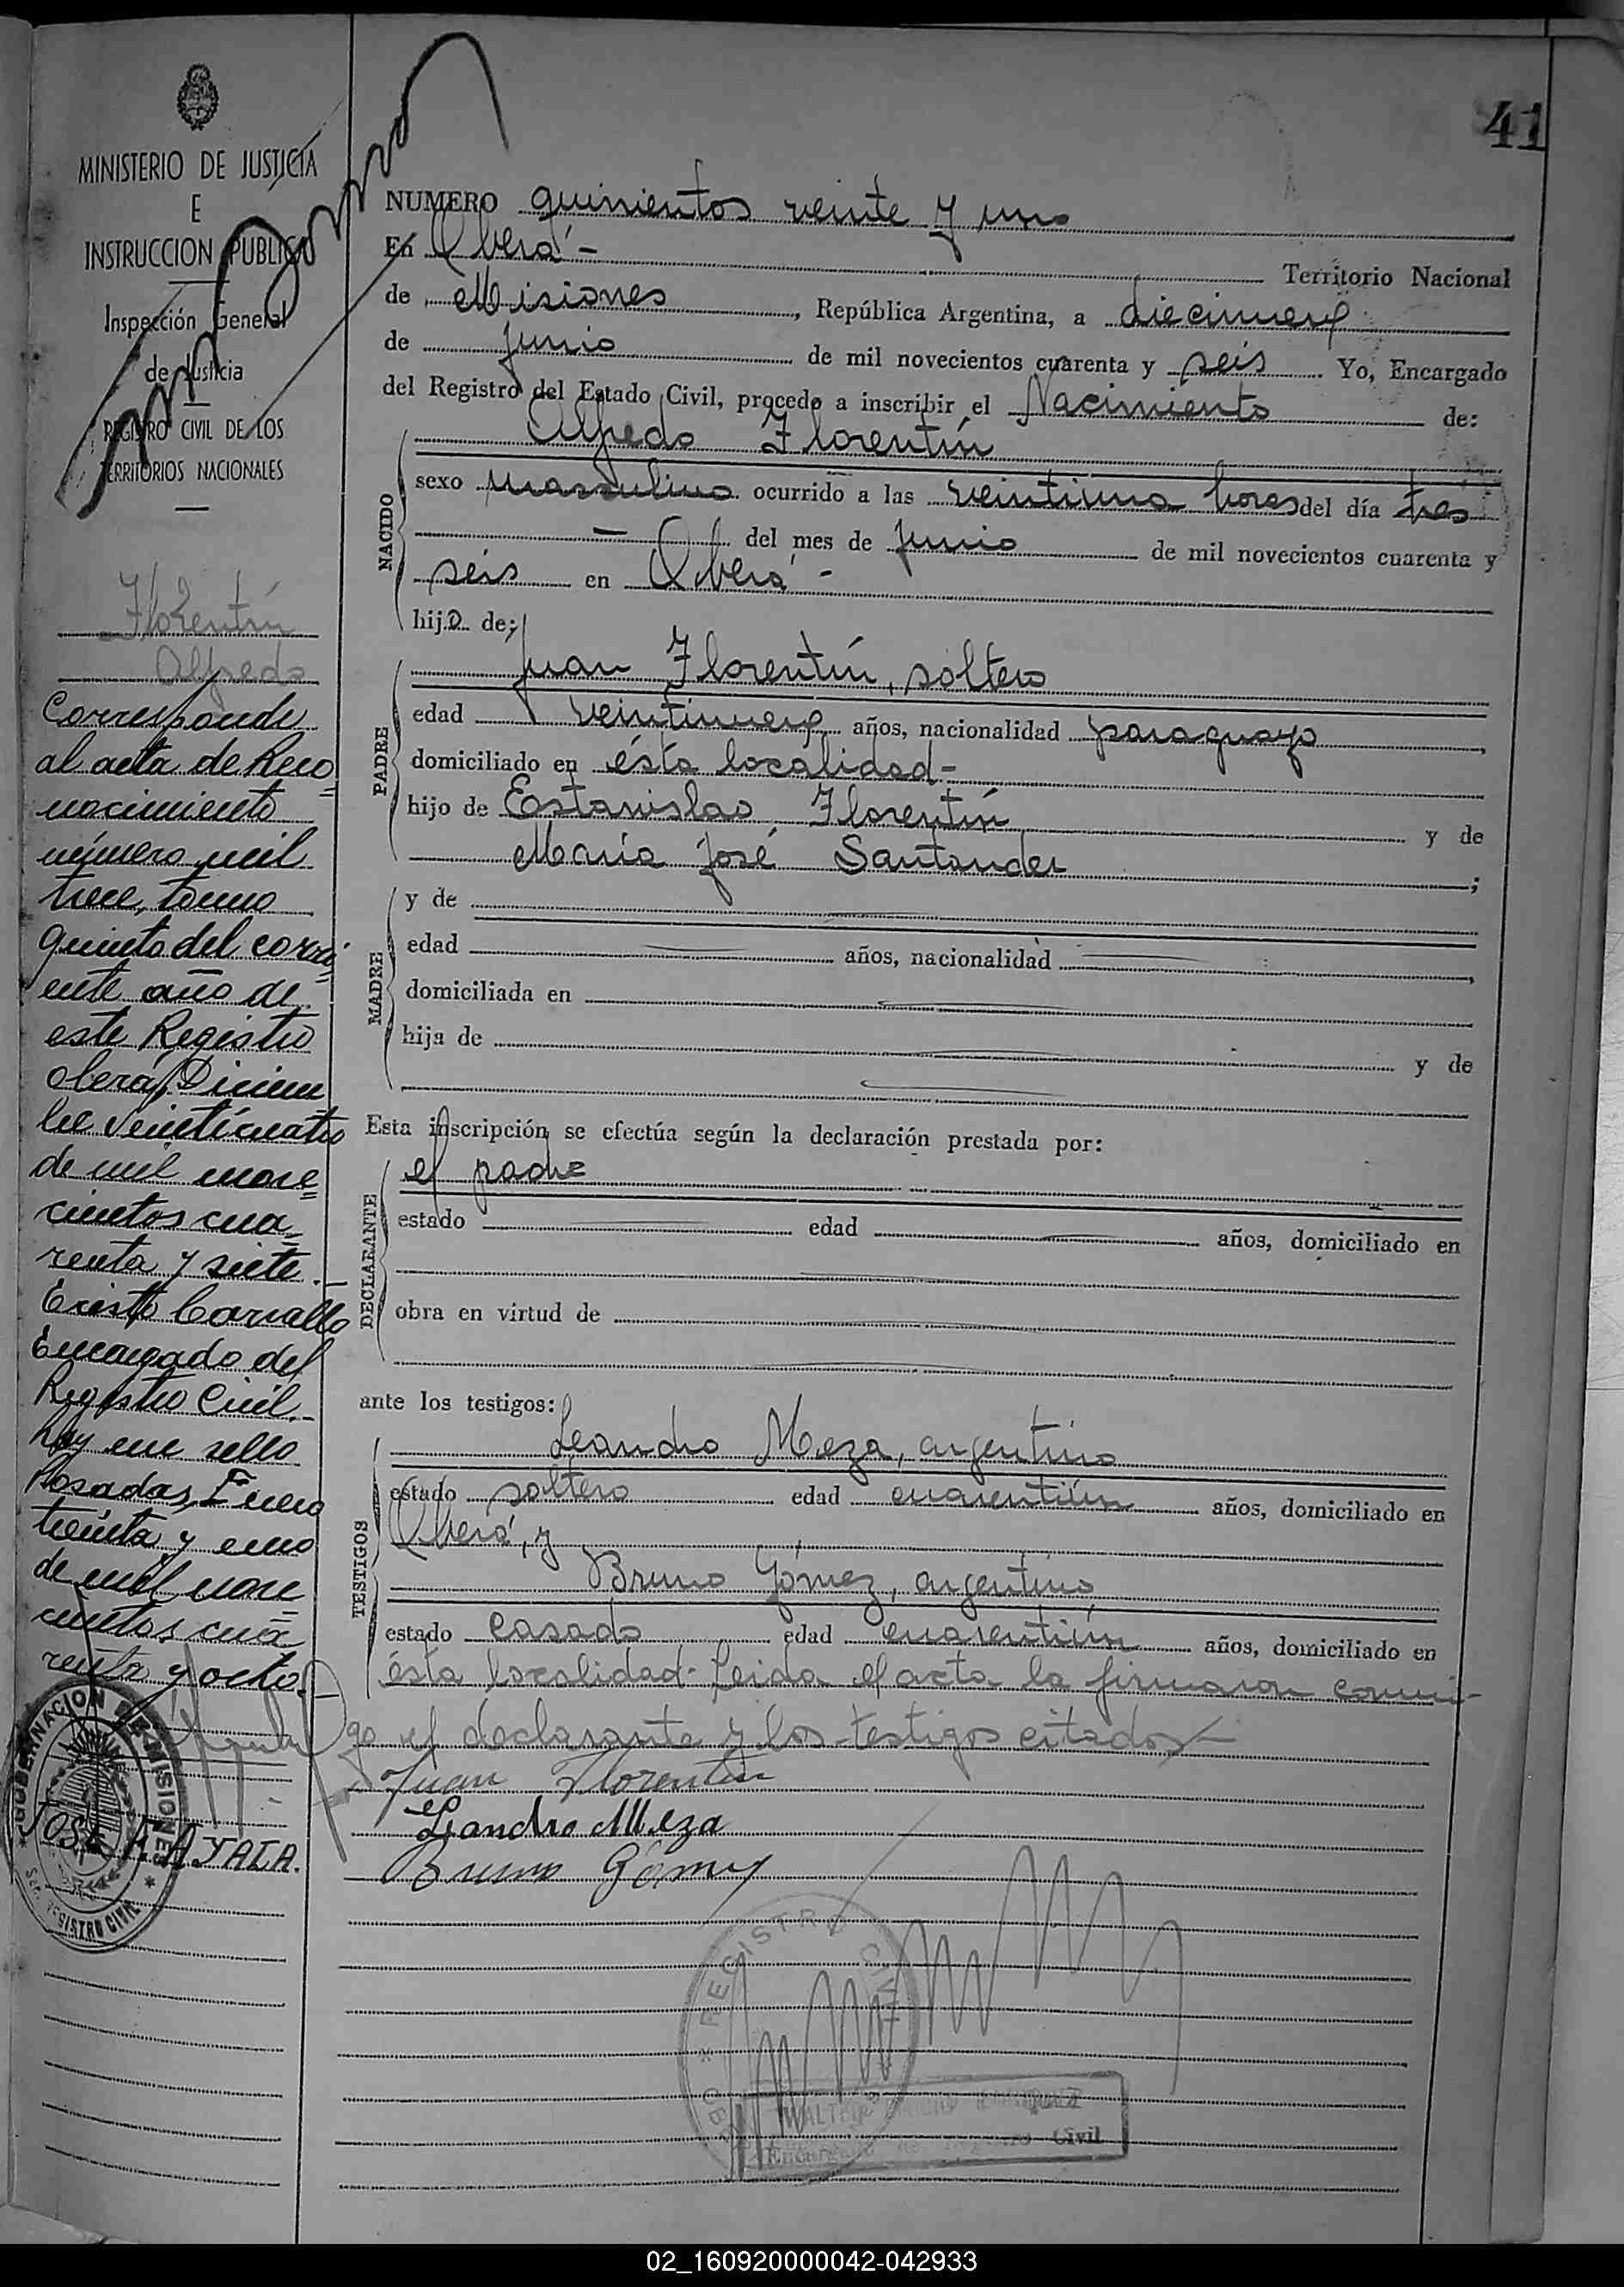 41
MINISTERIO DE JUSTICIA
E
INSTRUCCION PUBLICA
Inspección General
de Justicia
REGISTRO CIVIL DE LOS
TERRITORIOS NACIONALES
Florentín
Alfredo
Corresponde
al acta de Reco=
nocimiento
número mil
trece, tomo
quinto del corri=
ente año de
este Registro
Oberá, Diciem
bre veinticuatro
de mil nove=
cientos cua=
renta y siete.-
Evaristo Carvallo
Encargado del
Registro Civil.-
hay un sello
Posadas, Enero
treinta y uno
de mil nove=
cientos cua=
renta y ocho.-
GOBERNACION DE MISIONES
REGISTRO CIVIL
JOSE F. AYALA.
NUMERO quinientos veinte y uno
En Oberá - Territorio Nacional
de Misiones, República Argentina, a diecinueve
de Junio de mil novecientos cuarenta y seis. Yo, Encargado
del Registro del Estado Civil, procedo a inscribir el Nacimiento de:
Alfredo Florentín
NACIDO
sexo masculino ocurrido a las veintiuna horas del día tres
— del mes de Junio de mil novecientos cuarenta y
seis en Oberá -
hijo de;
Juan Florentín, soltero
PADRE
edad veintinueve años, nacionalidad paraguayo,
domiciliado en ésta localidad-
hijo de Estanislao Florentín y de
María José Santander;
MADRE
y de
edad años, nacionalidad ,
domiciliada en
hija de y de
Esta inscripción se efectúa según la declaración prestada por:
el padre
DECLARANTE
estado edad años, domiciliado en
obra en virtud de
ante los testigos:
Leandro Meza, argentino
TESTIGOS
estado soltero edad cuarentiún años, domiciliado en
Oberá, y
Bruno Gómez, argentino
estado casado edad cuarentiún años, domiciliado en
ésta localidad- Leida el acta la firmaron conmi-
go el declarante y los testigos citados-
Juan Florentín
Leandro Meza
Bruno Gómez
REGISTRO CIVIL
WALTER
Encargado Registro Civil
02_160920000042-042933